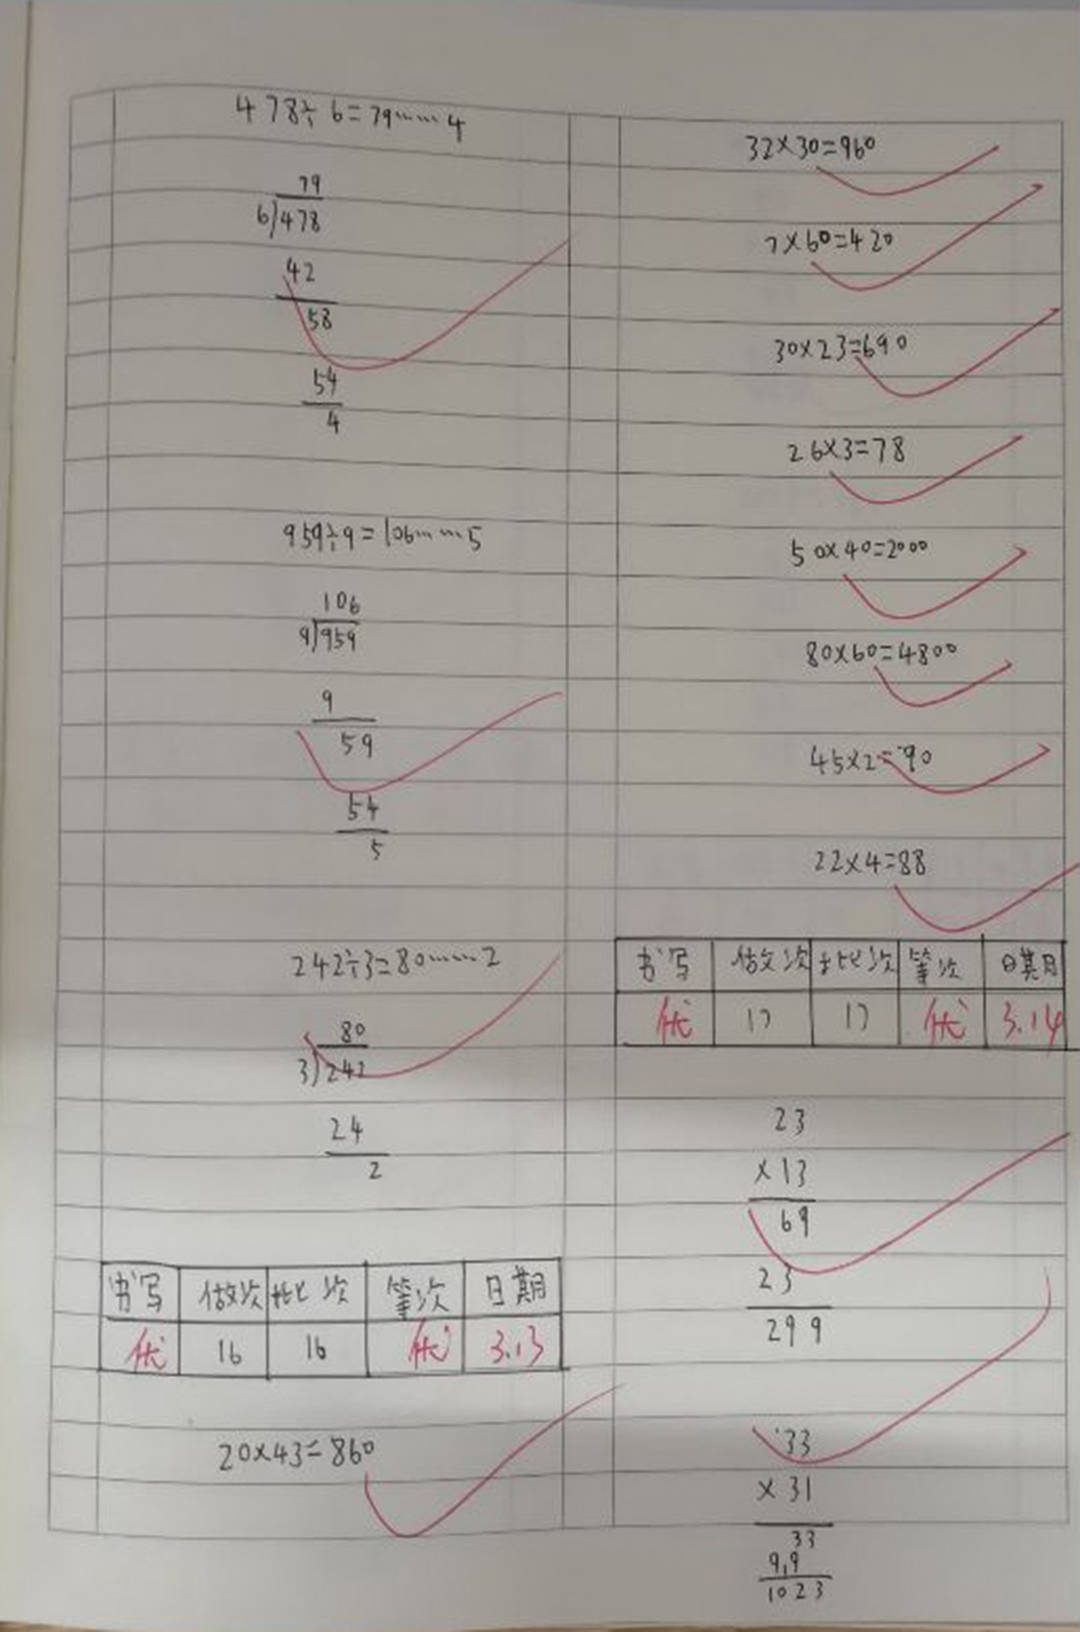 478÷6=79……4
79
6)478
42
58
54
4
959÷9=106……5
106
9)959
9
59
54
5
242÷3=80……2
80
3)242
24
2
书写 做次 批次 等次 日期
优 16 16 优 3.13
20×43=860
32×30=960
7×60=420
30×23=690
26×3=78
50×40=2000
80×60=4800
45×2=90
22×4=88
书写 做次 批次 等次 日期
优 17 17 优 3.14
23
×13
69
23
299
33
×31
33
99
1023